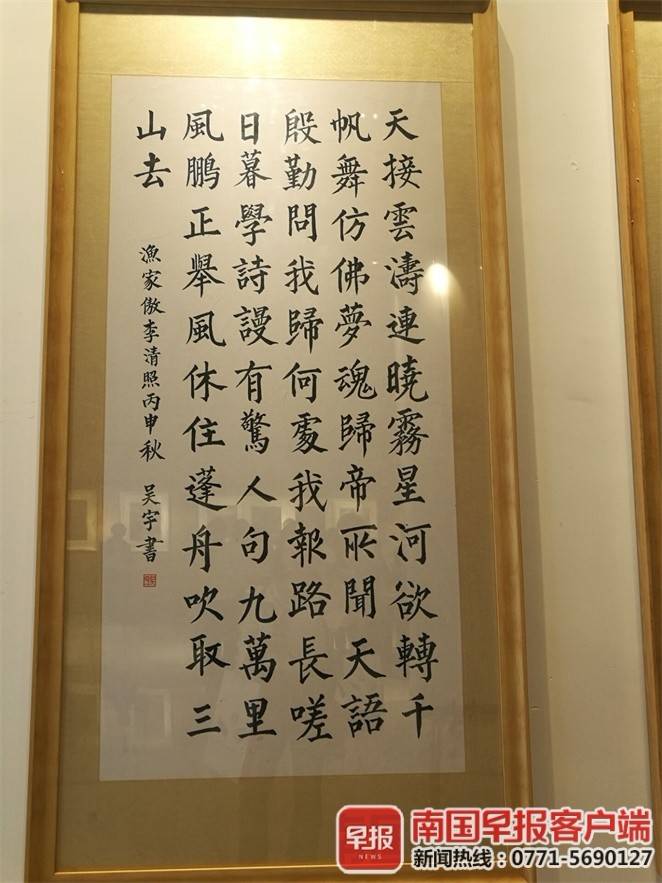 天接雲濤連曉霧星河欲轉千
帆舞仿佛夢魂歸帝所聞天語
殷勤問我歸何處我報路長嗟
日暮學詩謾有驚人句九萬里
風鵬正舉風休住蓬舟吹取三
山去
漁家傲李清照丙申秋 吴宇書
早报
NEWS
南国早报客户端
新闻热线：0771-5690127